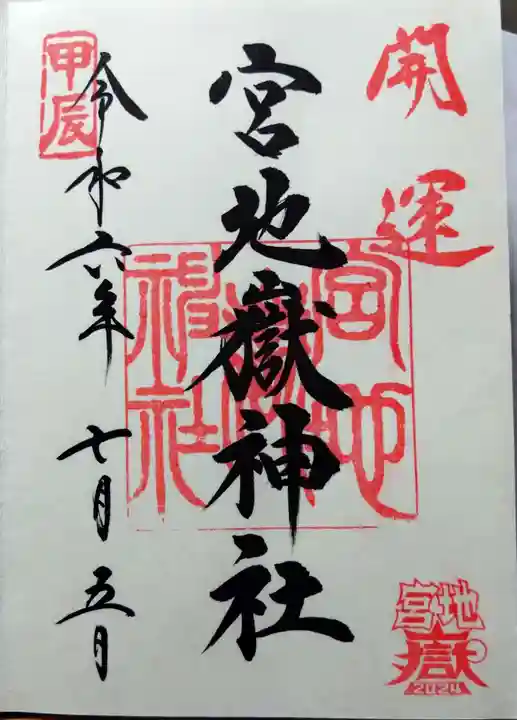 開運
宮地嶽神社
宮地嶽神社
甲辰
令和六年 七月五日
宮地嶽
2024